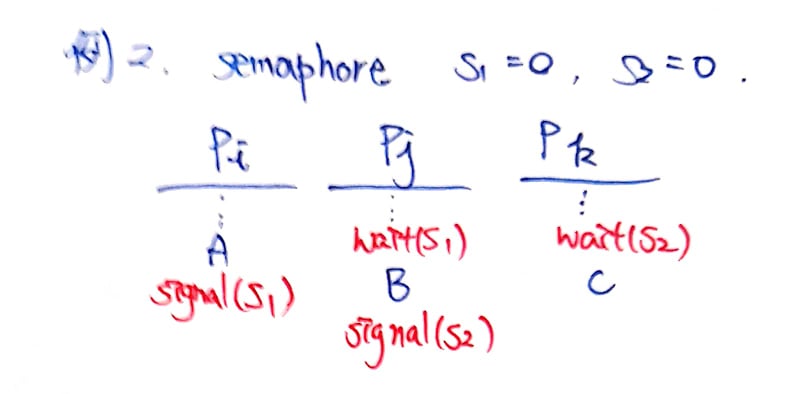 例) 2. semaphore S1 = 0, S2 = 0.
Pi Pj Pk
A wait(S1) wait(S2)
signal(S1) B C
signal(S2)